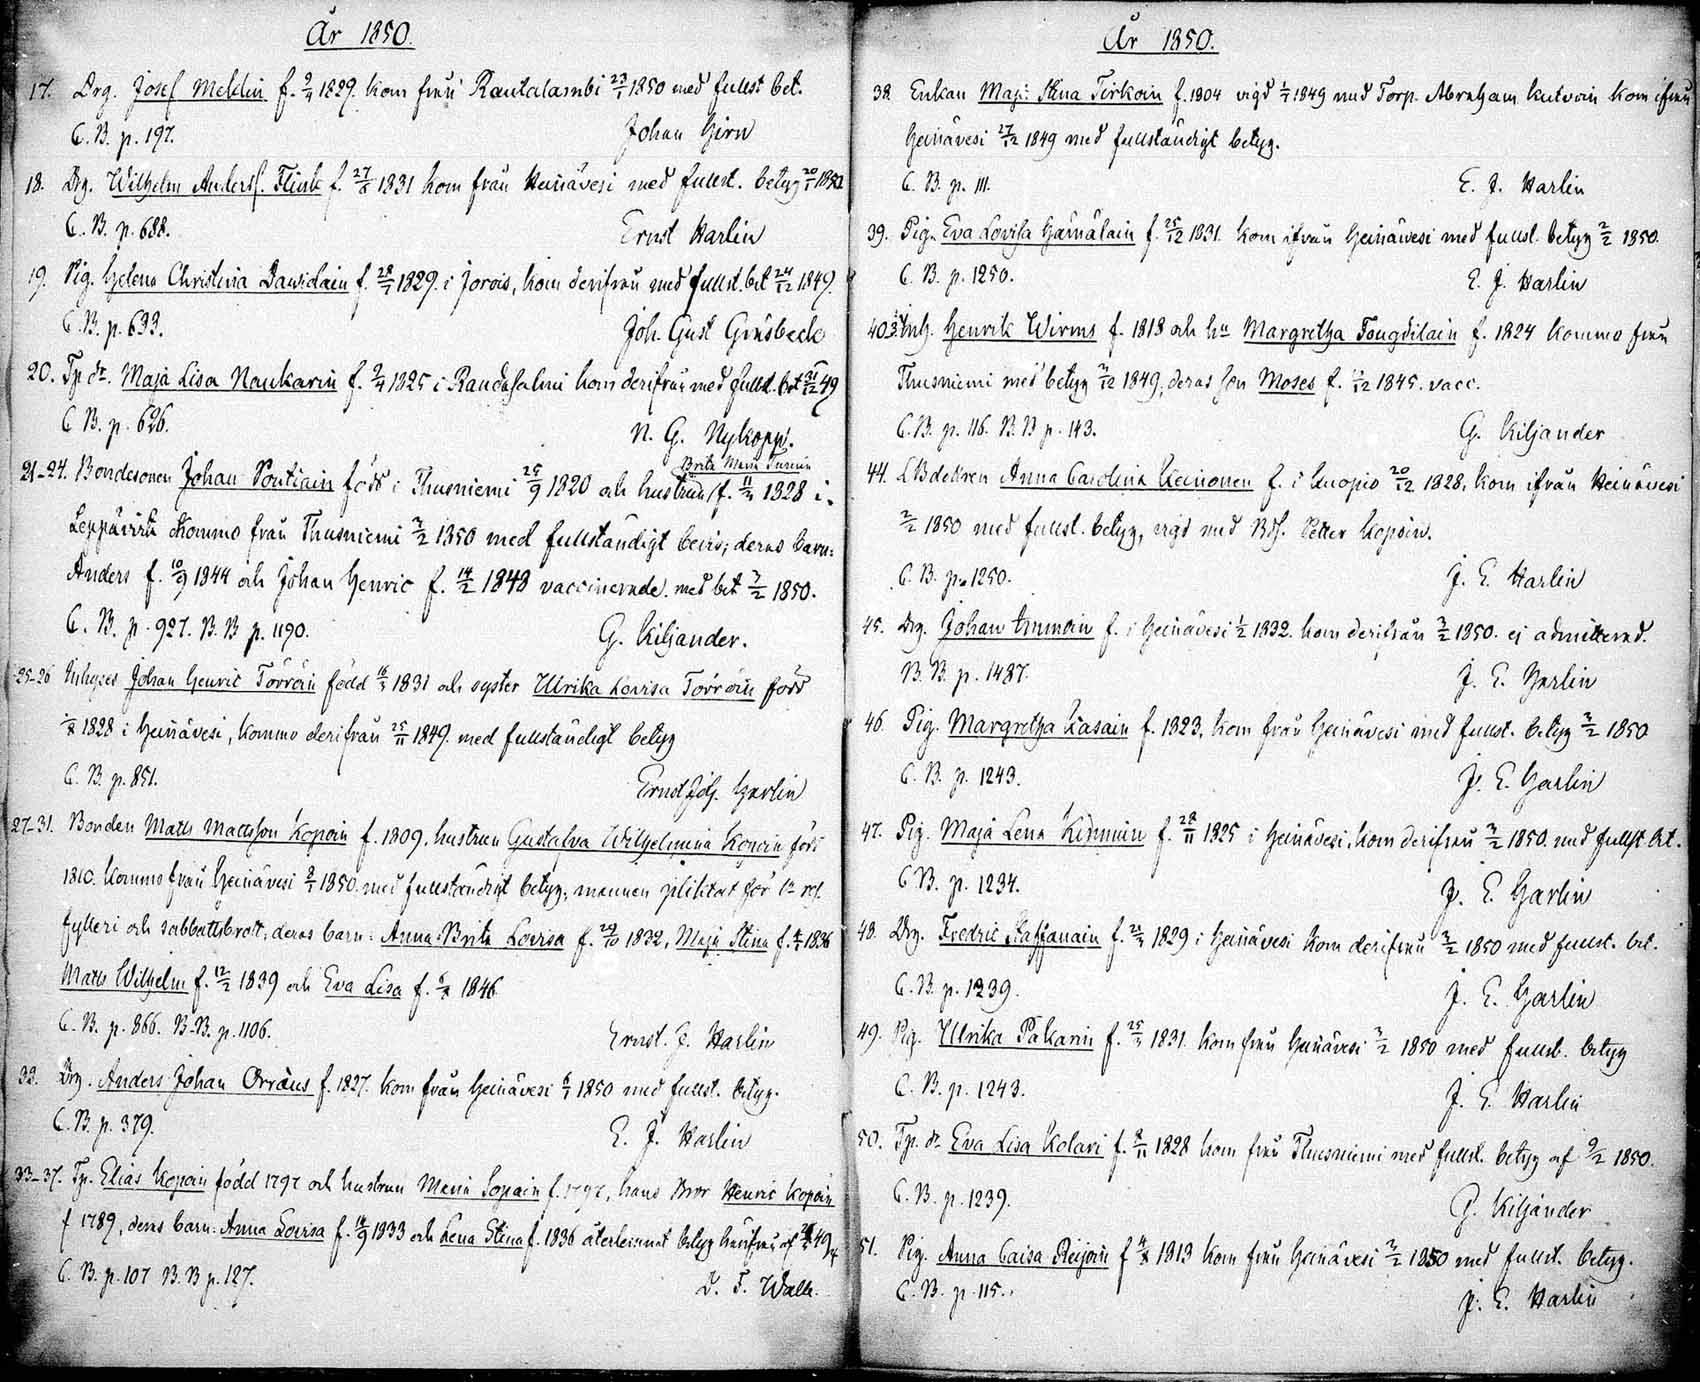 År 1850.
17. Drg. Josef Meklin f. 1829. kom från Rautalambi 23/1 1850 med fullst bet.
C. B. p. 197. Johan Girn
18. Drg. Wilhelm Anders. Flink f. 1831 kom från Heinävesi med fullst. betyg
C. B. p. 688. Ernst Harlin
19. Pig. Helena Christina Dawidain f. 1829. i Jorois, kom derifrån med fullst. bet 1849.
C. B. p. 633. Joh. Gust
20. Tp dr. Maja Lisa Naukarin f. 1825 i Randasalmi kom derifrån med fullst. bet 49
C B. p. 626. N. G. Nykopp.
Brita Maria
21-24. Bondesonen Johan Pontiain född i Thusniemi 25/9 1820 och hustrun f. 1828 i
Leppävirta kommo från Thusniemi 1850 med fullständigt bevis; deras barn:
Anders f. 10/9 1844 och Johan Henric f. 14/2 1848 vaccinerade. med bet 1850.
C. B. p. 927. B. B p. 1190. G. Kiljander.
25-26 Inhyses Johan Henric Törröin född 1831 och syster Ulrika Lovisa Törröin född
1828 i Heinävesi, kommo derifrån 25/11 1849. med fullständigt betyg
C. B. p. 851. Ernst Joh. Harlin
27-31. Bonden Matts Mattsson Kopoin f. 1809. hustrun Gustafva Wilhelmina Kopoin född
1810. kommo från Heinävesi 1850. med fullständigt betyg; mannen pliktat för
fylleri och sabbattsbrott; deras barn: Anna Brita Lovisa f. 29/10 1832, Maja Stina f. 1836
Matts Wilhelm f. 12/2 1839 och Eva Lisa f. 1846
C. B. p. 866. B. B. p. 1106. Ernst. J. Harlin
Drg. Anders Johan Orraus f. 1827. kom från Heinävesi 1850 med fullst. betyg.
C. B. p. 379. E. J. Harlin
33-37. Tp. Elias Kopoin född 1797 och hustrun Maria Sopain f. 1797, hans Bror Henric Kopoin
f 1789, deras barn: Anna Lovisa f. 1833 och Lena Stina f. 1836 återlemnat betyg af 49
C. B. p. 107 B. B p. 127. D. T. Walle.
År 1850.
38 Enkan Maja Stina Tirkoin f. 1804 vigd 1849 med Torp. Abraham Kutvoin kom ifrån
Heinävesi 27/12 1849 med fullständigt betyg.
C. B. p. 111. E. J. Harlin
39. Pig. Eva Lovisa Hämäläin f. 25/12 1831. kom ifrån Heinävesi med fullst. betyg 2/2 1850.
C. B. p. 1250. E. J. Harlin
Inh. Henrik Wirms f. 1818 och hu Margretha f. 1824 kommo från
Thusniemi med betyg 1849, deras son Moses f. 1845. vacc.
C. B. p. 116. B. B p. 143. G. Kiljander
44. Anna Carolina Keinonen f. i Kuopio 20/12 1828. kom ifrån Heinävesi
2/2 1850 med fullst. betyg, vigd med Petter Kopoin.
C. B. p. 1250. J. E. Harlin
45. Drg. Johan Immoin f. i Heinävesi 1/2 1832. kom derifrån 1850. ej admitterad.
B. B. p. 1487. J. E. Harlin
46. Pig. Margretha Kasain f. 1823, kom från Heinävesi med fullst. betyg 1850
C. B. p. 1243. J. E. Harlin
47. Pig. Maja Lena Kinnuin f. 28/11 1825 i Heinävesi, kom derifrån 1850. med fullst. bet.
C B. p. 1234. J. E. Harlin
48. Drg. Fredric Staffanain f. 1829 i Heinävesi kom derifrån 1850 med fullst. bet.
C. B. p. 1239. J. E. Harlin
49. Pig. Ulrika Pakarin f. 1831. kom från Heinävesi 1850 med fullst. betyg
C. B. p. 1243. J. E. Harlin
50. Tp. dr Eva Lisa Kolari f. 1828 kom från Thusniemi med fullst. betyg af 9/2 1850.
C. B. p. 1239. G. Kiljander
51. Pig. Anna Caisa Reijoin f 1813 kom från Heinävesi 1850 med fullst. betyg.
C. B. p. 115. J. E. Harlin